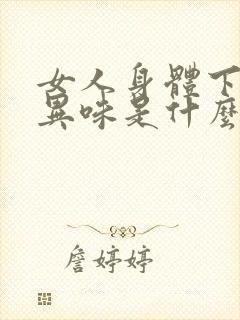 女人身體下
異味是什麼
詹婷婷